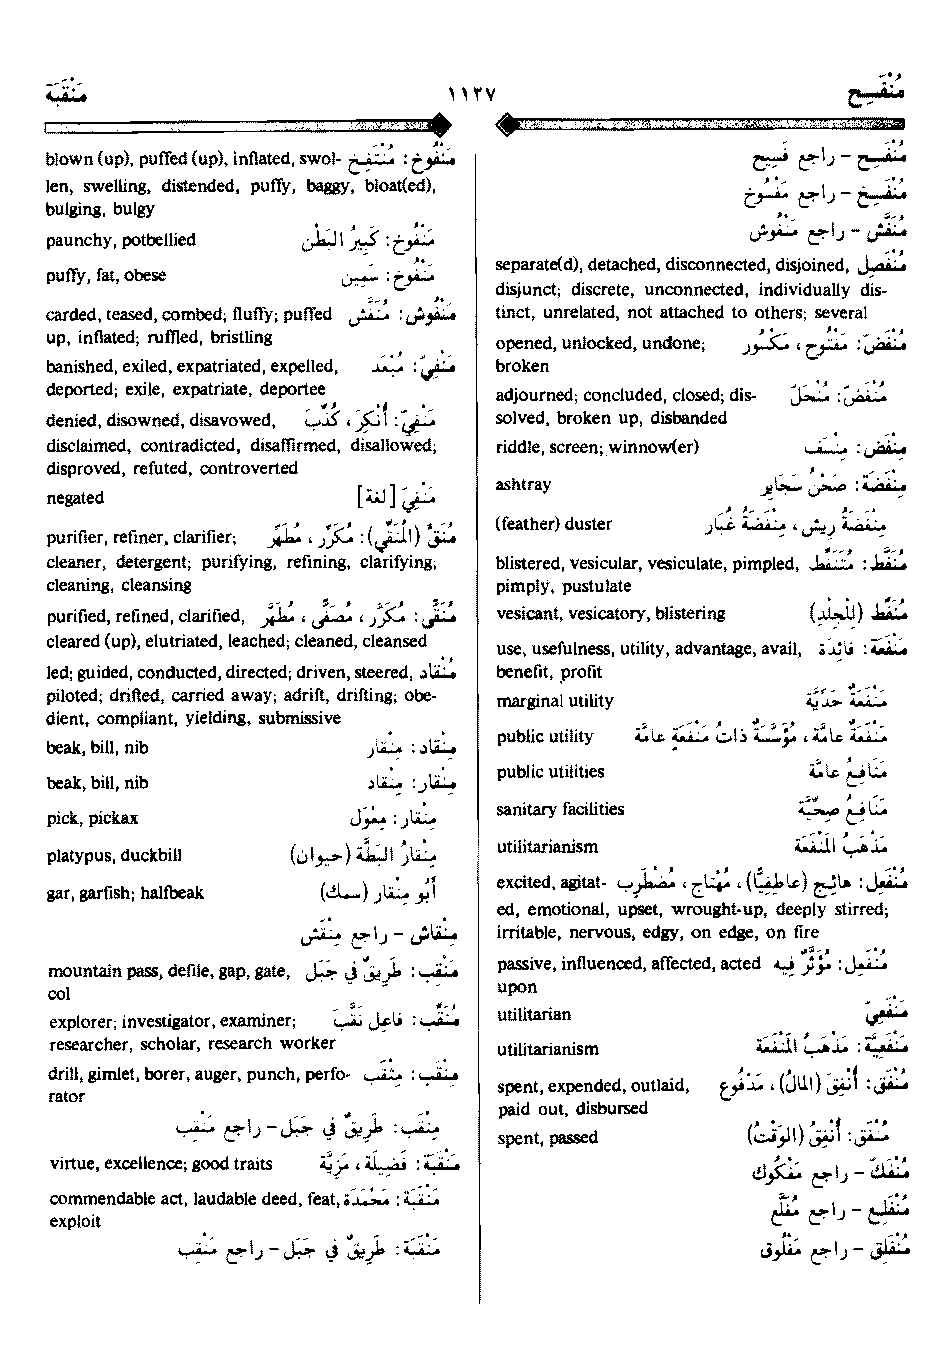 مُنْفَسِح
١١٣٧
مَنْقَبَة
مُنْفَسِح - راجع فَسِيح
مُنْفَسِخ - راجع مَفْسُوخ
مُنَفَّش - راجع مَنْفُوش
مُنْفَصِل separate(d), detached, disconnected, disjoined,
disjunct; discrete, unconnected, individually dis-
tinct, unrelated, not attached to others; several
مُنْفَضّ: مَفْتُوح ، مَكْسُور opened, unlocked, undone;
broken
مُنْفَضّ: مُنْحَلّ adjourned; concluded, closed; dis-
solved, broken up, disbanded
مِنْفَض: مِنْسَف riddle, screen; winnow(er)
مِنْفَضَة: صَحْنُ سَجَايِر ashtray
مِنْفَضَةُ رِيش ، مِنْفَضَةُ غُبَار (feather) duster
مُنَفَّط: مُتَنَفِّط blistered, vesicular, vesiculate, pimpled,
pimply, pustulate
مُنَفِّط (لِلْجِلْد) vesicant, vesicatory, blistering
مَنْفَعَة: فَائِدَة use, usefulness, utility, advantage, avail,
benefit, profit
مَنْفَعَةٌ حَدِّيَّة marginal utility
مَنْفَعَةٌ عامَّة ، مُؤَسَّسَةٌ ذاتُ مَنْفَعَةٍ عامَّة public utility
مَنَافِعُ عامَّة public utilities
مَنَافِعُ صِحِّيَّة sanitary facilities
مَذْهَبُ المَنْفَعَة utilitarianism
مُنْفَعِل: هائِج (عاطِفِيًّا) ، مُهْتَاج ، مُضْطَرِب excited, agitat-
ed, emotional, upset, wrought-up, deeply stirred;
irritable, nervous, edgy, on edge, on fire
مُنْفَعِل: مُؤَثَّرٌ فِيه passive, influenced, affected, acted
upon
مَنْفَعِيّ utilitarian
مَنْفَعِيَّة: مَذْهَبُ المَنْفَعَة utilitarianism
مُنْفَق: أُنْفِقَ (المَالُ) ، مَدْفُوع spent, expended, outlaid,
paid out, disbursed
مُنْفَق: أُنْفِقَ (الوَقْتُ) spent, passed
مُنْفَكّ - راجع مَفْكُوك
مُنْفَلِع - راجع مُفَلَّع
مُنْفَلِق - راجع مَفْلُوق
مَنْفُوخ: مُنْتَفِخ blown (up), puffed (up), inflated, swol-
len, swelling, distended, puffy, baggy, bloat(ed),
bulging, bulgy
مَنْفُوخ: كَبِيرُ البَطْن paunchy, potbellied
مَنْفُوخ: سَمِين puffy, fat, obese
مَنْفُوش: مُنَفَّش carded, teased, combed; fluffy; puffed
up, inflated; ruffled, bristling
مَنْفِيّ: مُبْعَد banished, exiled, expatriated, expelled,
deported; exile, expatriate, deportee
مَنْفِيّ: أُنْكِرَ ، كُذِّبَ denied, disowned, disavowed,
disclaimed, contradicted, disaffirmed, disallowed;
disproved, refuted, controverted
مَنْفِيّ [لغة] negated
مُنَقٍّ (المُنَقِّي): مُكَرِّر ، مُطَهِّر purifier, refiner, clarifier;
cleaner, detergent; purifying, refining, clarifying;
cleaning, cleansing
مُنَقًّى: مُكَرَّر ، مُصَفًّى ، مُطَهَّر purified, refined, clarified,
cleared (up), elutriated, leached; cleaned, cleansed
مُنْقَاد led; guided, conducted, directed; driven, steered,
piloted; drifted, carried away; adrift, drifting; obe-
dient, compliant, yielding, submissive
مِنْقَاد: مِنْقَار beak, bill, nib
مِنْقَار: مِنْقَاد beak, bill, nib
مِنْقَار: مِعْوَل pick, pickax
مِنْقَارُ البَطَّة (حيوان) platypus, duckbill
أَبُو مِنْقَار (سمك) gar, garfish; halfbeak
مِنْقَاش - راجع مِنْقَش
مَنْقَب: طَرِيقٌ في جَبَل mountain pass, defile, gap, gate,
col
مُنَقِّب: فاعل نَقَّبَ explorer; investigator, examiner;
researcher, scholar, research worker
مِنْقَب: مِثْقَب drill, gimlet, borer, auger, punch, perfo-
rator
مِنْقَب: طَرِيقٌ في جَبَل - راجع مَنْقَب
مَنْقَبَة: فَضِيلَة ، مَزِيَّة virtue, excellence; good traits
مَنْقَبَة: مَحْمَدَة commendable act, laudable deed, feat,
exploit
مَنْقَبَة: طَرِيقٌ في جَبَل - راجع مَنْقَب